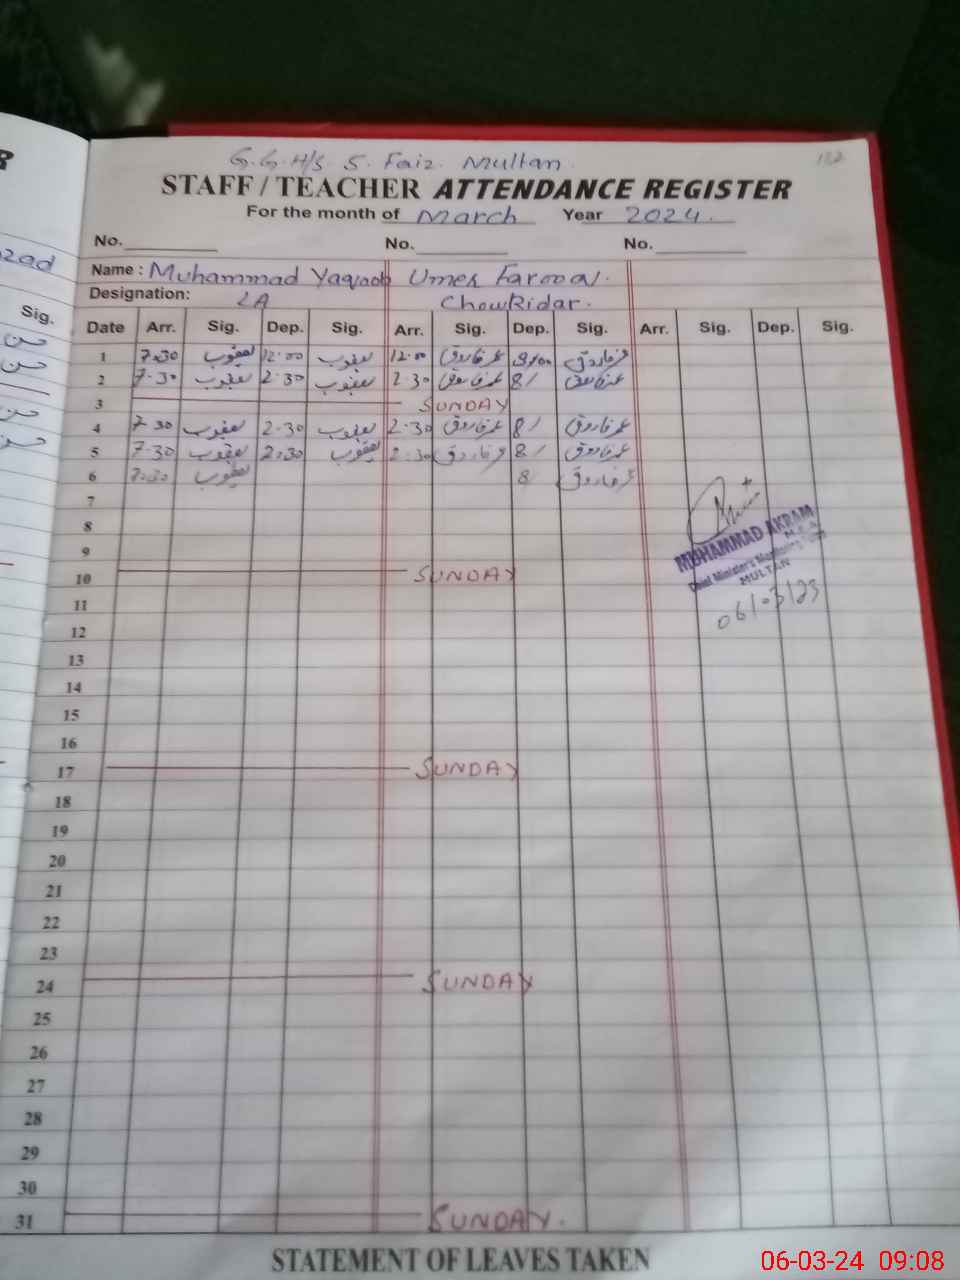 G.G.H/S 5. Faiz. Multan.
132
STAFF / TEACHER ATTENDANCE REGISTER
For the month of March Year 2024.
No. No. No.
Name : Muhammad Yaqoob Umer Farooq.
Designation: LA ChowKidar.
Date Arr. Sig. Dep. Sig. Arr. Sig. Dep. Sig. Arr. Sig. Dep. Sig.
1 7.30 یعقوب 12.00 یعقوب 12.00 عمرفاروق عمرفاروق
2 7.30 یعقوب 2.30 یعقوب 2.30 عمرفاروق 8/ عمرفاروق
3 SUNDAY
4 7.30 یعقوب 2.30 یعقوب 2.30 عمرفاروق 8/ عمرفاروق
5 7.30 یعقوب 2.30 یعقوب 2.30 عمرفاروق 8/ عمرفاروق
6 7.30 یعقوب 8/ عمرفاروق
7
8
9
10 SUNDAY
11
12
13
14
15
16
17 SUNDAY
18
19
20
21
22
23
24 SUNDAY
25
26
27
28
29
30
31 SUNDAY.
MUHAMMAD AKRAM
M.E.A
Chief Minister's Monitoring Force
MULTAN
06/03/23
STATEMENT OF LEAVES TAKEN
R
zad
Sig.
حسن
حسن
حسن
حسن
06-03-24 09:08